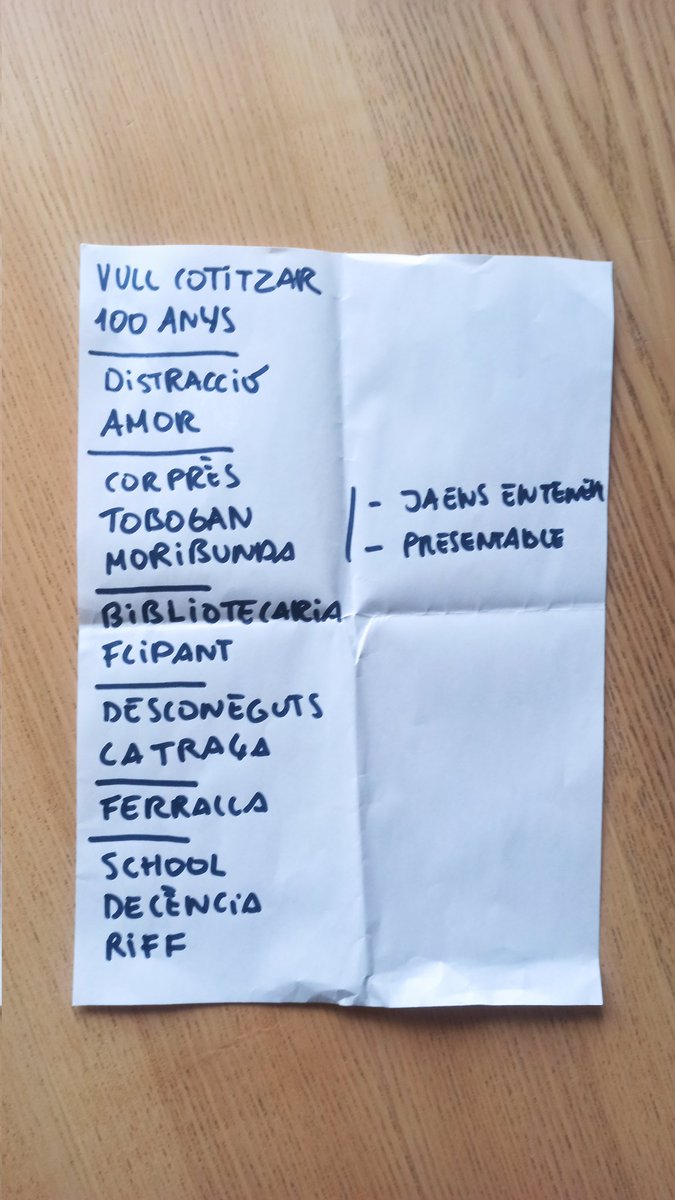 VULL COTITZAR
100 ANYS
DISTRACCIÓ
AMOR
CORPRÈS
TOBOGAN
MORIBUNDA
- JA ENS ENTENEM
- PRESENTABLE
BIBLIOTECARIA
FLIPANT
DESCONEGUTS
LA TRAÇA
FERRALLA
SCHOOL
DECÈNCIA
RIFF